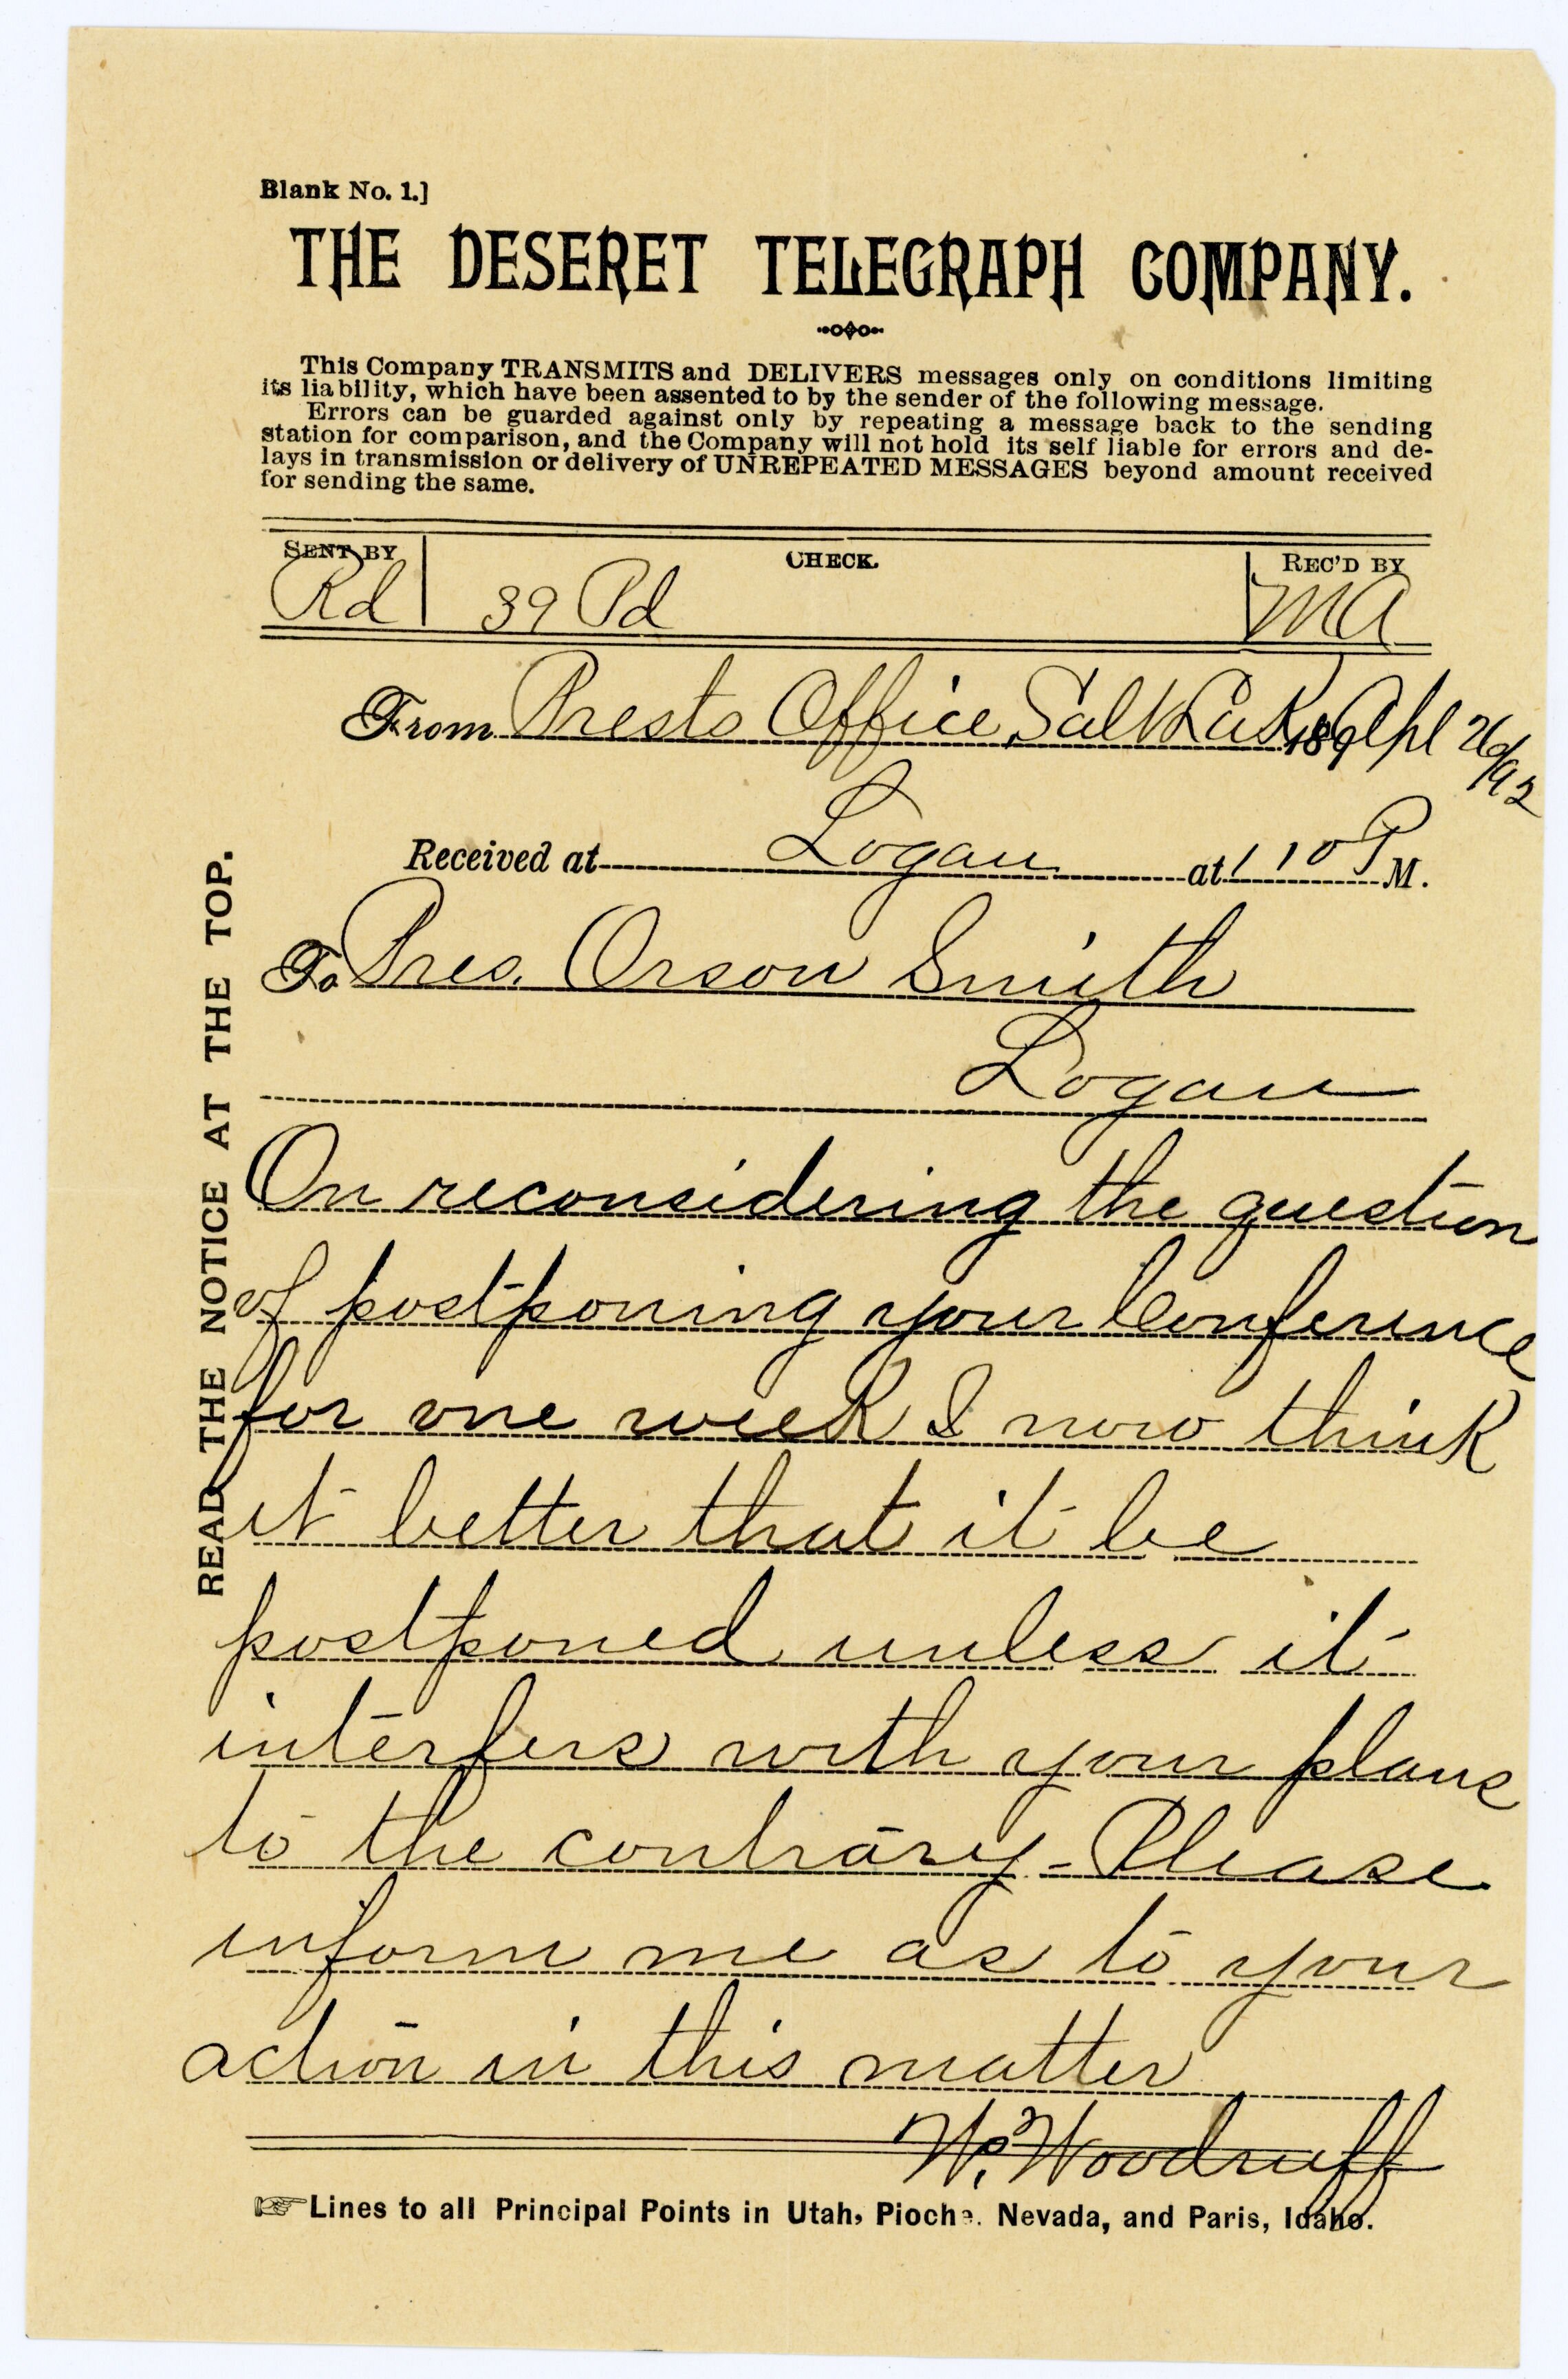 Blank No. 1.]
THE DESERET TELEGRAPH COMPANY.
This Company TRANSMITS and DELIVERS messages only on conditions limiting
its liability, which have been assented to by the sender of the following message.
Errors can be guarded against only by repeating a message back to the sending
station for comparison, and the Company will not hold its self liable for errors and de-
lays in transmission or delivery of UNREPEATED MESSAGES beyond amount received
for sending the same.
SENT BY CHECK. REC'D BY
Rd 39 Pd MA
From Prests Office Salt Lake 189 Apl 26/92
Received at Logan at 1 10 P M.
To Pres. Orson Smith
Logan
READ THE NOTICE AT THE TOP.
On reconsidering the question
of postponing your Conference
for one week I now think
it better that it be
postponed unless it
interfers with your plans
to the contrary - Please
inform me as to your
action in this matter
W. Woodruff
Lines to all Principal Points in Utah, Pioche. Nevada, and Paris, Idaho.